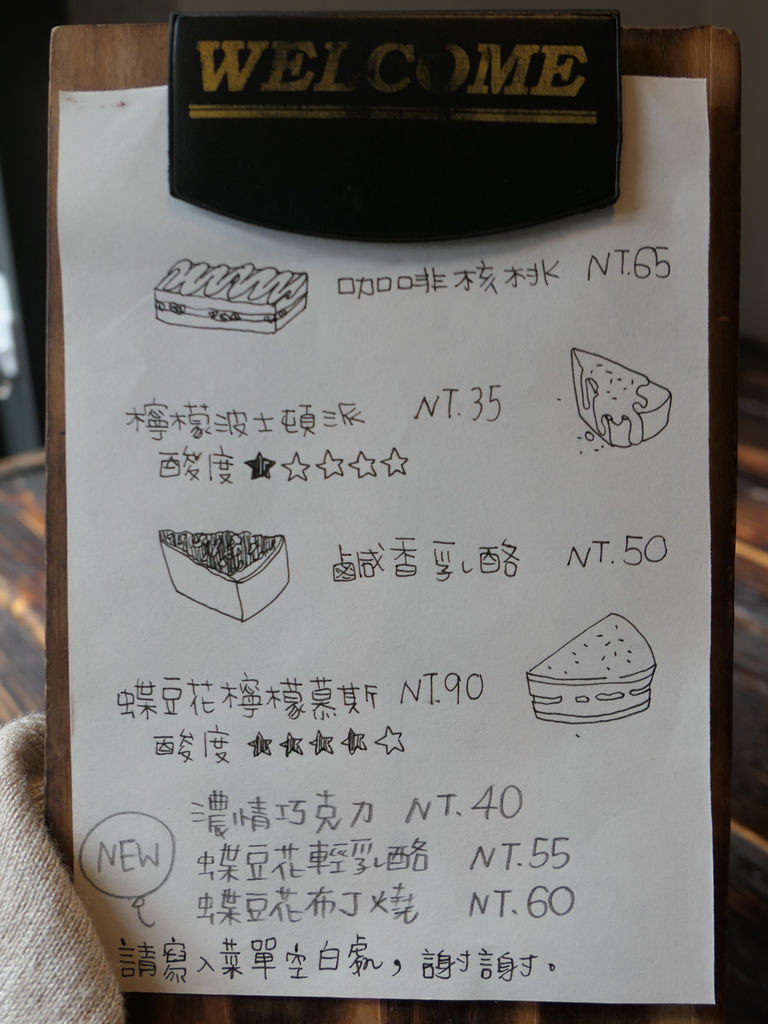 WELCOME
咖啡核桃 NT.65
檸檬波士頓派 NT.35
酸度★☆☆☆☆
鹹香乳酪 NT.50
蝶豆花檸檬慕斯 NT.90
酸度★★★★☆
濃情巧克力 NT.40
NEW
蝶豆花輕乳酪 NT.55
蝶豆花布丁燒 NT.60
請寫入菜單空白處，謝謝。